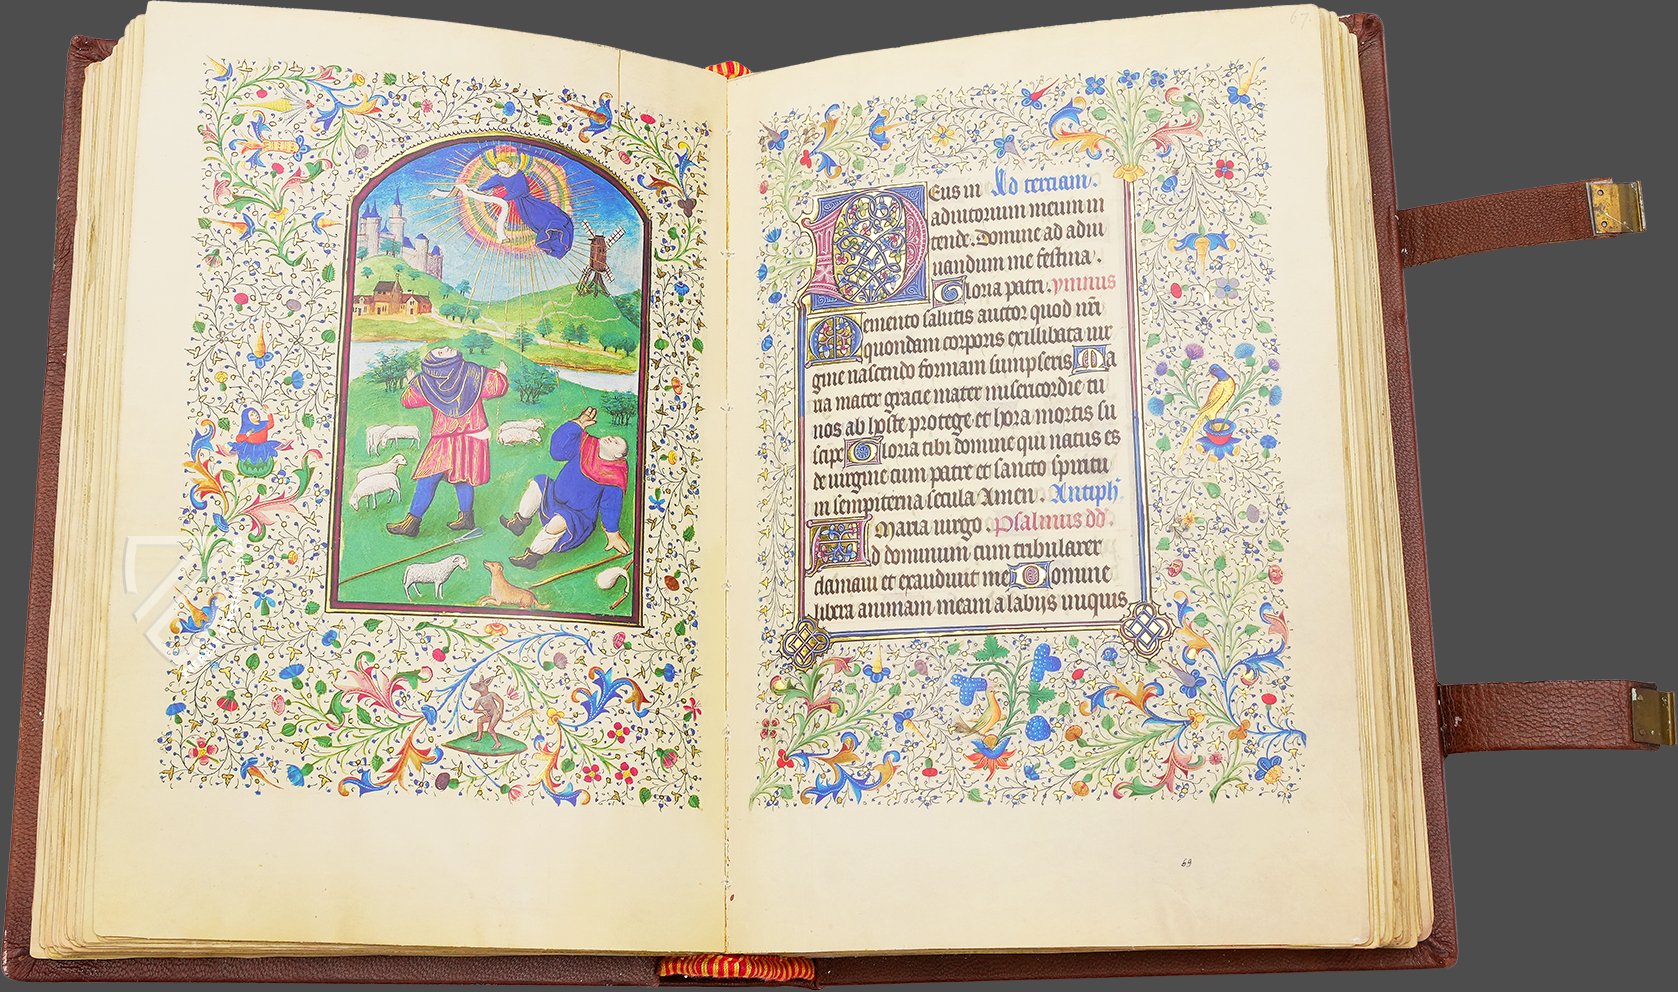 67.
Deus in Ad terciam.
adiutorium meum in
tende. Domine ad adiu
uandum me festina.
Gloria patri. ymnus
Memento salutis auctor quod nr̄i
quondam corporis exillibata uir
gine nascendo formam sumpseris Ma
ria mater gracie mater misericordie tu
nos ab hoste protege et hora mortis su
scipe Gloria tibi domine qui natus es
de uirgine cum patre et sancto spiritu
in sempiterna secula Amen Antiph̄.
Maria uirgo. Psalmus dd̄.
Ad dominum cum tribularer
clamaui et exaudiuit me Domine
libera animam meam a labijs iniquis
69